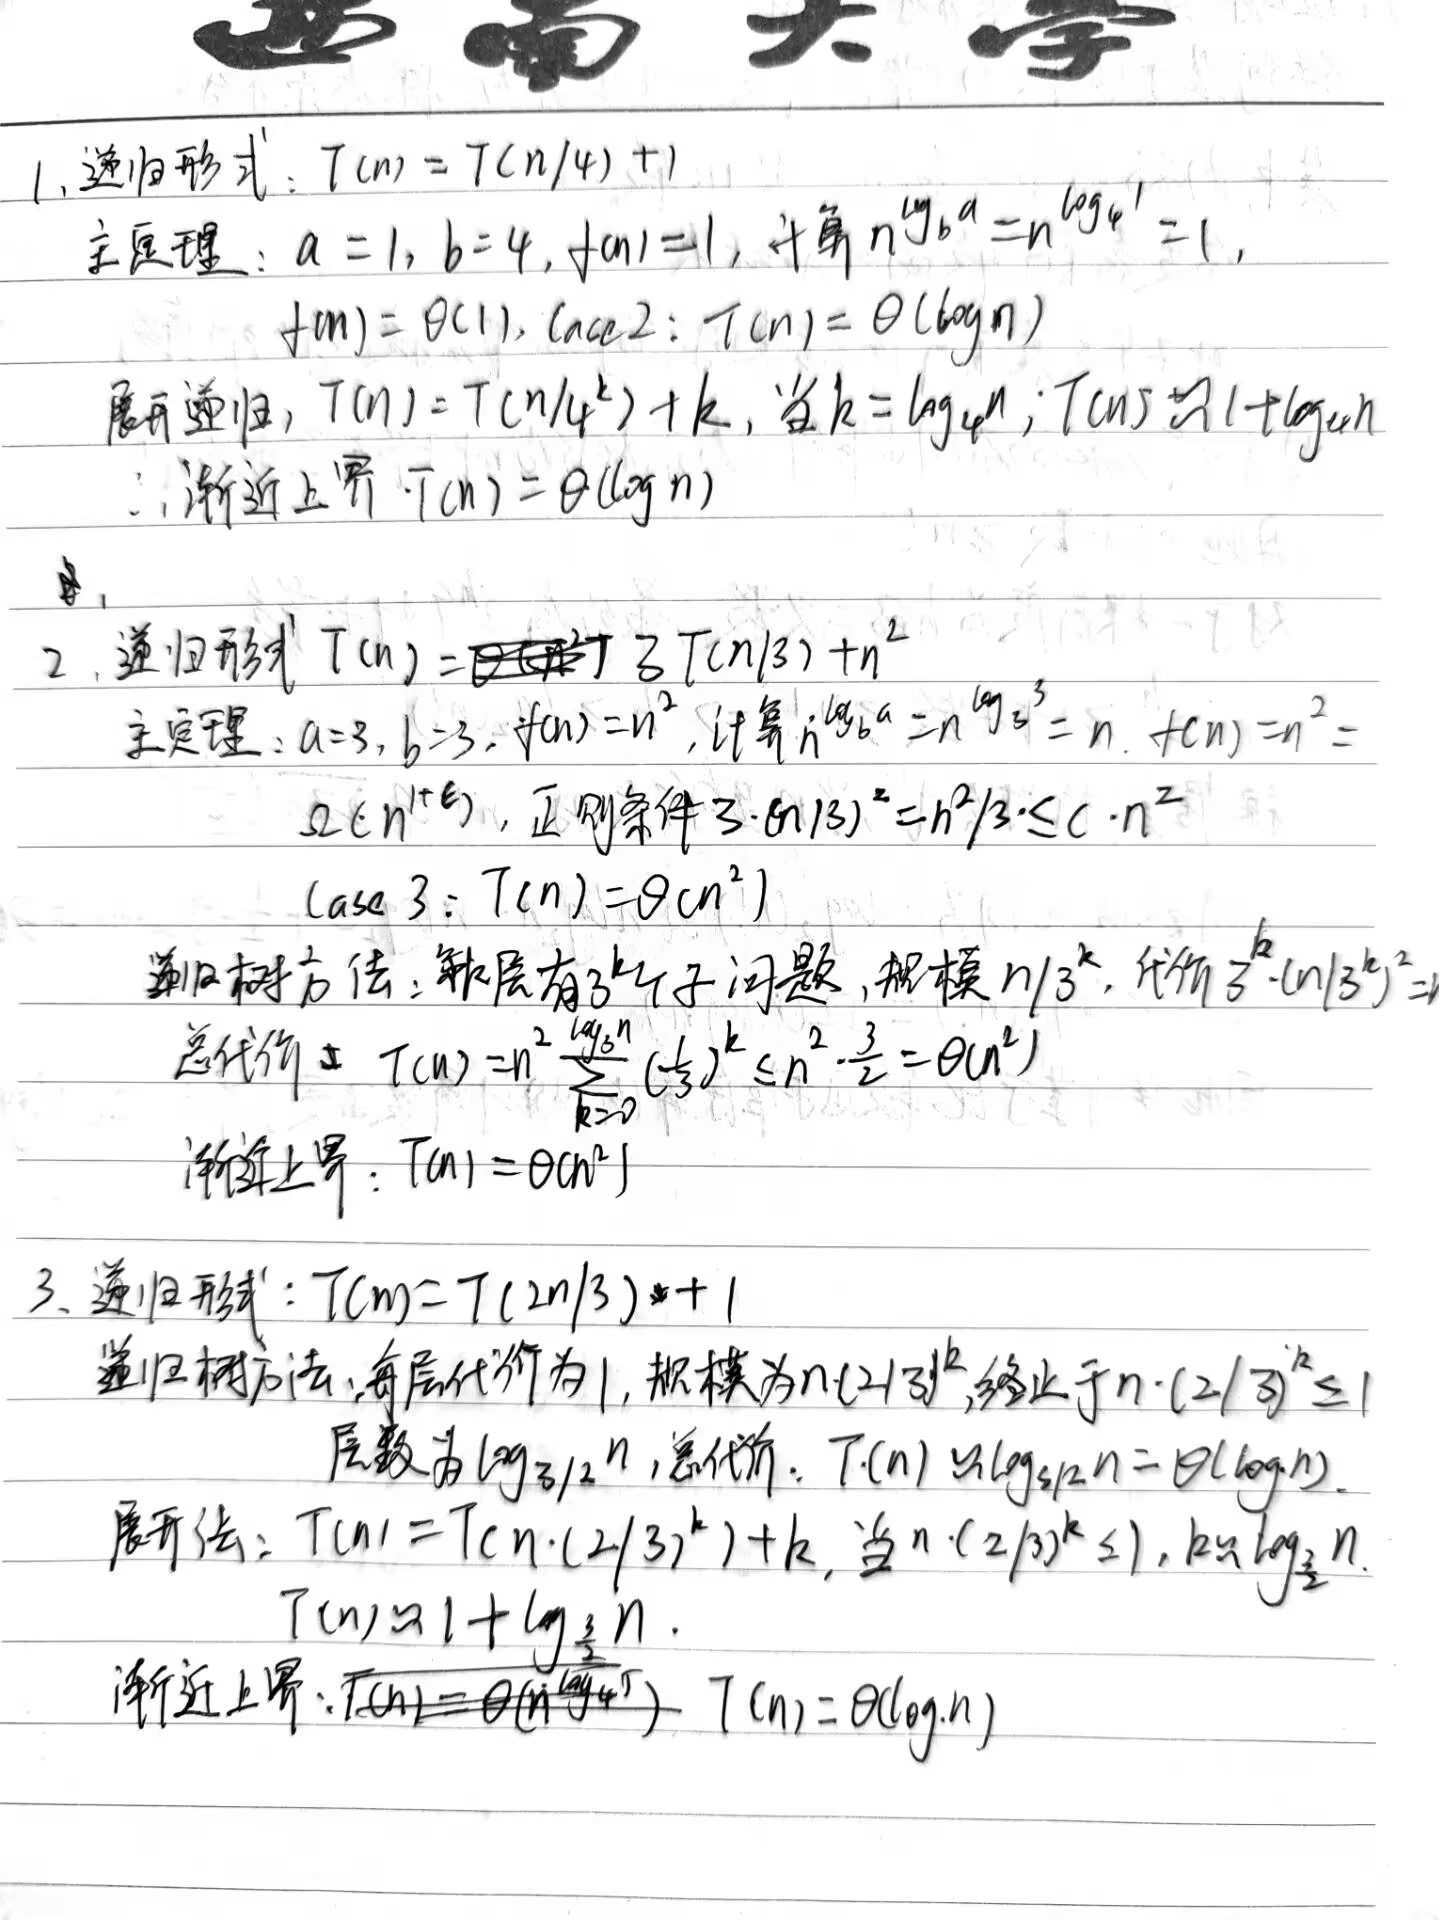 西南大学
1、递归形式：T(n) = T(n/4) + 1
主定理：a = 1, b = 4, f(n) = 1, 计算 n^{log_b a} = n^{log_4 1} = 1,
f(n) = θ(1), Case 2: T(n) = θ(log n)
展开递归, T(n) = T(n/4^k) + k, 当 k = log_4 n; T(n) ≈ 1 + log_4 n
∴ 渐近上界 T(n) = θ(log n)
2、递归形式 T(n) = 3T(n/3) + n^2
主定理：a=3, b=3, f(n) = n^2, 计算 n^{log_b a} = n^{log_3 3} = n. f(n) = n^2 =
Ω(n^{1+ε}), 正则条件 3·(n/3)^2 = n^2/3 ≤ c·n^2
Case 3: T(n) = θ(n^2)
递归树方法：第k层有3^k个子问题, 规模 n/3^k, 代价 3^k·(n/3^k)^2 =
总代价: T(n) = n^2 \sum_{k=0}^{log_3 n} (1/3)^k ≤ n^2 · 3/2 = θ(n^2)
渐近上界：T(n) = θ(n^2)
3、递归形式：T(n) = T(2n/3) + 1
递归树方法：每层代价为1, 规模为n·(2/3)^k, 终止于 n·(2/3)^k ≤ 1
层数为 log_{3/2} n, 总代价: T(n) ≈ log_{3/2} n = θ(log n).
展开法：T(n) = T(n·(2/3)^k) + k, 当 n·(2/3)^k ≤ 1, k ≈ log_{3/2} n.
T(n) ≈ 1 + log_{3/2} n.
渐近上界：T(n) = θ(log n)